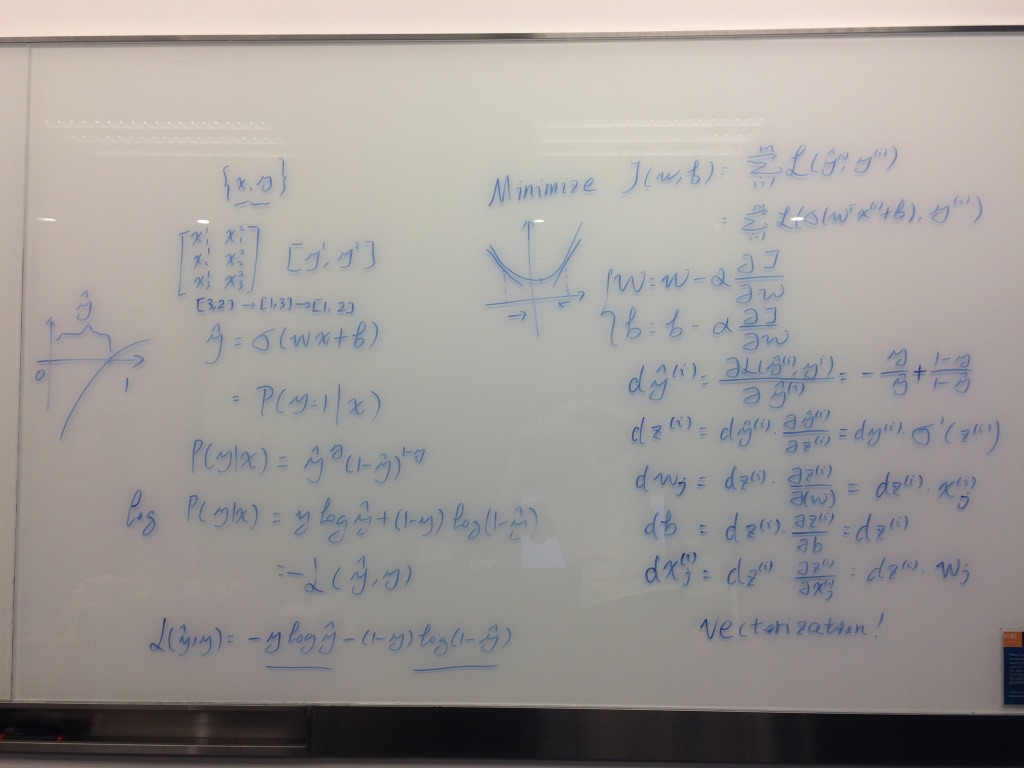 {x, y}
[x₁¹ x₁²
x₂¹ x₂²
x₃¹ x₃²] [y¹, y²]
[3,2] → [1,3] → [1,2]
ŷ = σ(wx+b)
= P(y=1|x)
P(y|x) = ŷ^y (1-ŷ)^(1-y)
log P(y|x) = y log ŷ + (1-y) log(1-ŷ)
= -L(ŷ, y)
L(ŷ, y) = -y log ŷ - (1-y) log(1-ŷ)
ŷ
0 1
Minimize J(w, b) = Σ_{i=1}^{m} L(ŷ⁽ⁱ⁾, y⁽ⁱ⁾)
= Σ_{i=1}^{m} L(σ(wᵀx⁽ⁱ⁾+b), y⁽ⁱ⁾)
{ w = w - α ∂J/∂w
b = b - α ∂J/∂w
dŷ⁽ⁱ⁾ = ∂L(ŷ⁽ⁱ⁾, yⁱ)/∂ŷ⁽ⁱ⁾ = -y/ŷ + (1-y)/(1-ŷ)
dz⁽ⁱ⁾ = dŷ⁽ⁱ⁾ · ∂ŷ⁽ⁱ⁾/∂z⁽ⁱ⁾ = dy⁽ⁱ⁾ · σ'(z⁽ⁱ⁾)
dwⱼ = dz⁽ⁱ⁾ · ∂z⁽ⁱ⁾/∂(w) = dz⁽ⁱ⁾ · xⱼ⁽ⁱ⁾
db = dz⁽ⁱ⁾ · ∂z⁽ⁱ⁾/∂b = dz⁽ⁱ⁾
dxⱼ⁽ⁱ⁾ = dz⁽ⁱ⁾ · ∂z⁽ⁱ⁾/∂xⱼ⁽ⁱ⁾ = dz⁽ⁱ⁾ · wⱼ
Vectorization!